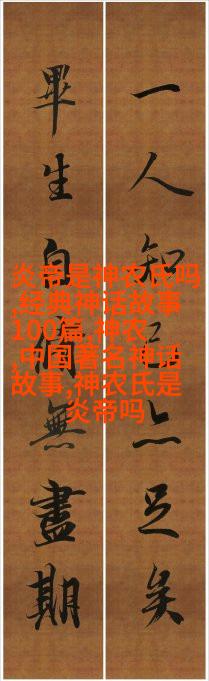 一人知己亦足矣
畢生自脩無盡期
炎帝是神农氏吗
,经典神话故事
100篇,神农
,中国著名神话
故事,神农氏是
炎帝吗